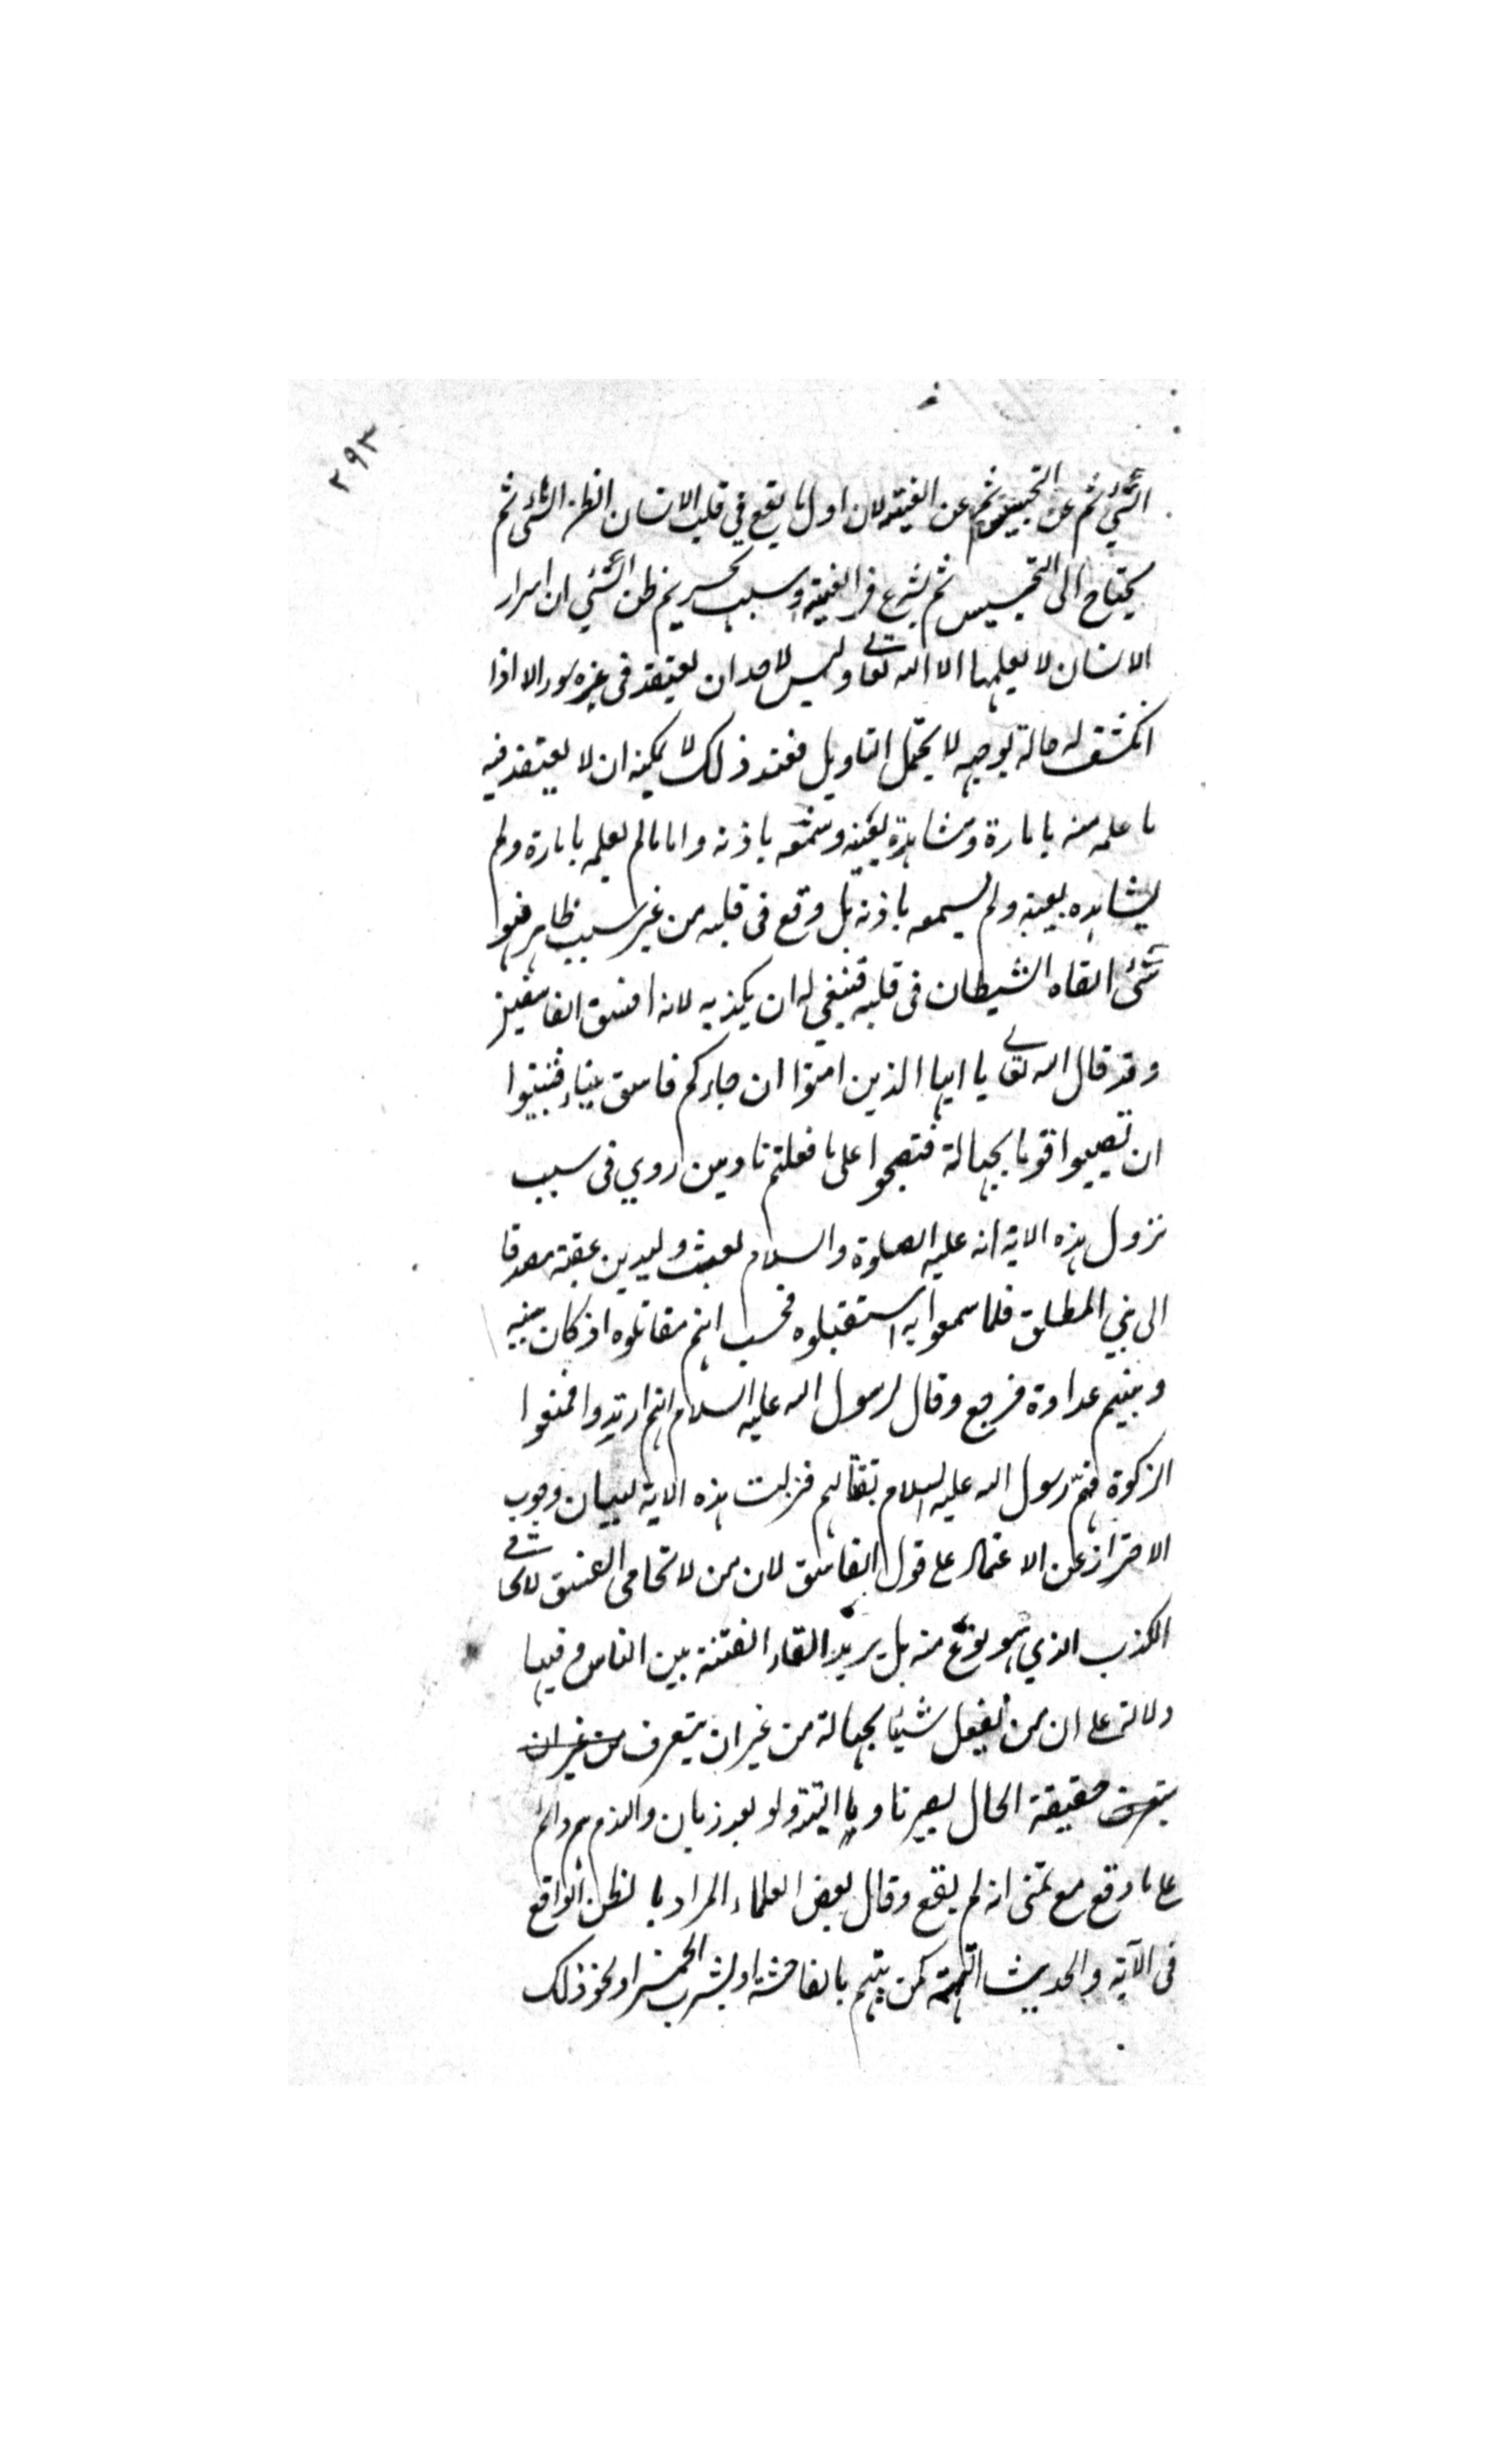 ٢٩٣
الشئ ثم عن التجسس ثم عن الغيبة لان اول ما يقع في قلب الانسان الظن الشئ ثم
يحتاج الى التجسس ثم يشرع في الغيبة وسبب تحريم ظن الشئ ان اسرار
الانسان لا يعلمها الا الله تعالى وليس لاحد ان يعتقد في غيره سوء الا اذا
انكشف له حاله بوجه لا يحتمل التاويل فعند ذلك لا يمكنه ان لا يعتقد فيه
ما علمه منه بامارة ومشاهدة بعينه وسمعه باذنه واما ما لم يعلمه بامارة ولم
يشاهده بعينه ولم يسمعه باذنه بل وقع في قلبه من غير سبب ظاهر فهو
شئ القاه الشيطان في قلبه فينبغي له ان يكذبه لانه افسق الفاسقين
وقد قال الله تعالى يا ايها الذين امنوا ان جاءكم فاسق بنباء فتبينوا
ان تصيبوا قوما بجهالة فتصبحوا على ما فعلتم نادمين روي في سبب
نزول هذه الاية انه عليه الصلوة والسلام بعث وليد بن عقبة مصدقا
الى بني المطلق فلما سمعوا به استقبلوه فحسب انهم مقاتلوه اذ كان بينه
وبينهم عداوة فرجع وقال لرسول الله عليه السلام انهم ارتدوا فمنعوا
الزكوة فهمّ رسول الله عليه السلام بقتالهم فنزلت هذه الاية لبيان وجوب
الاحتراز عن الاعتماد على قول الفاسق لان من لا تحامى الفسق لا تحامى
الكذب الذي هو نوع منه بل يريد القاء الفتنة بين الناس وفيها
دلالة على ان من يفعل شيئا بجهالة من غير ان يتعرف من غير ان
يتعرف حقيقة الحال يصير نادما البتة ولو بعد زمان والندم هم دائم
على ما وقع مع تمنى انه لم يقع وقال بعض العلماء المراد بالظن الواقع
في الآية والحديث التهمة كمن يتهم بالفاحشة او بشرب الخمر او نحو ذلك